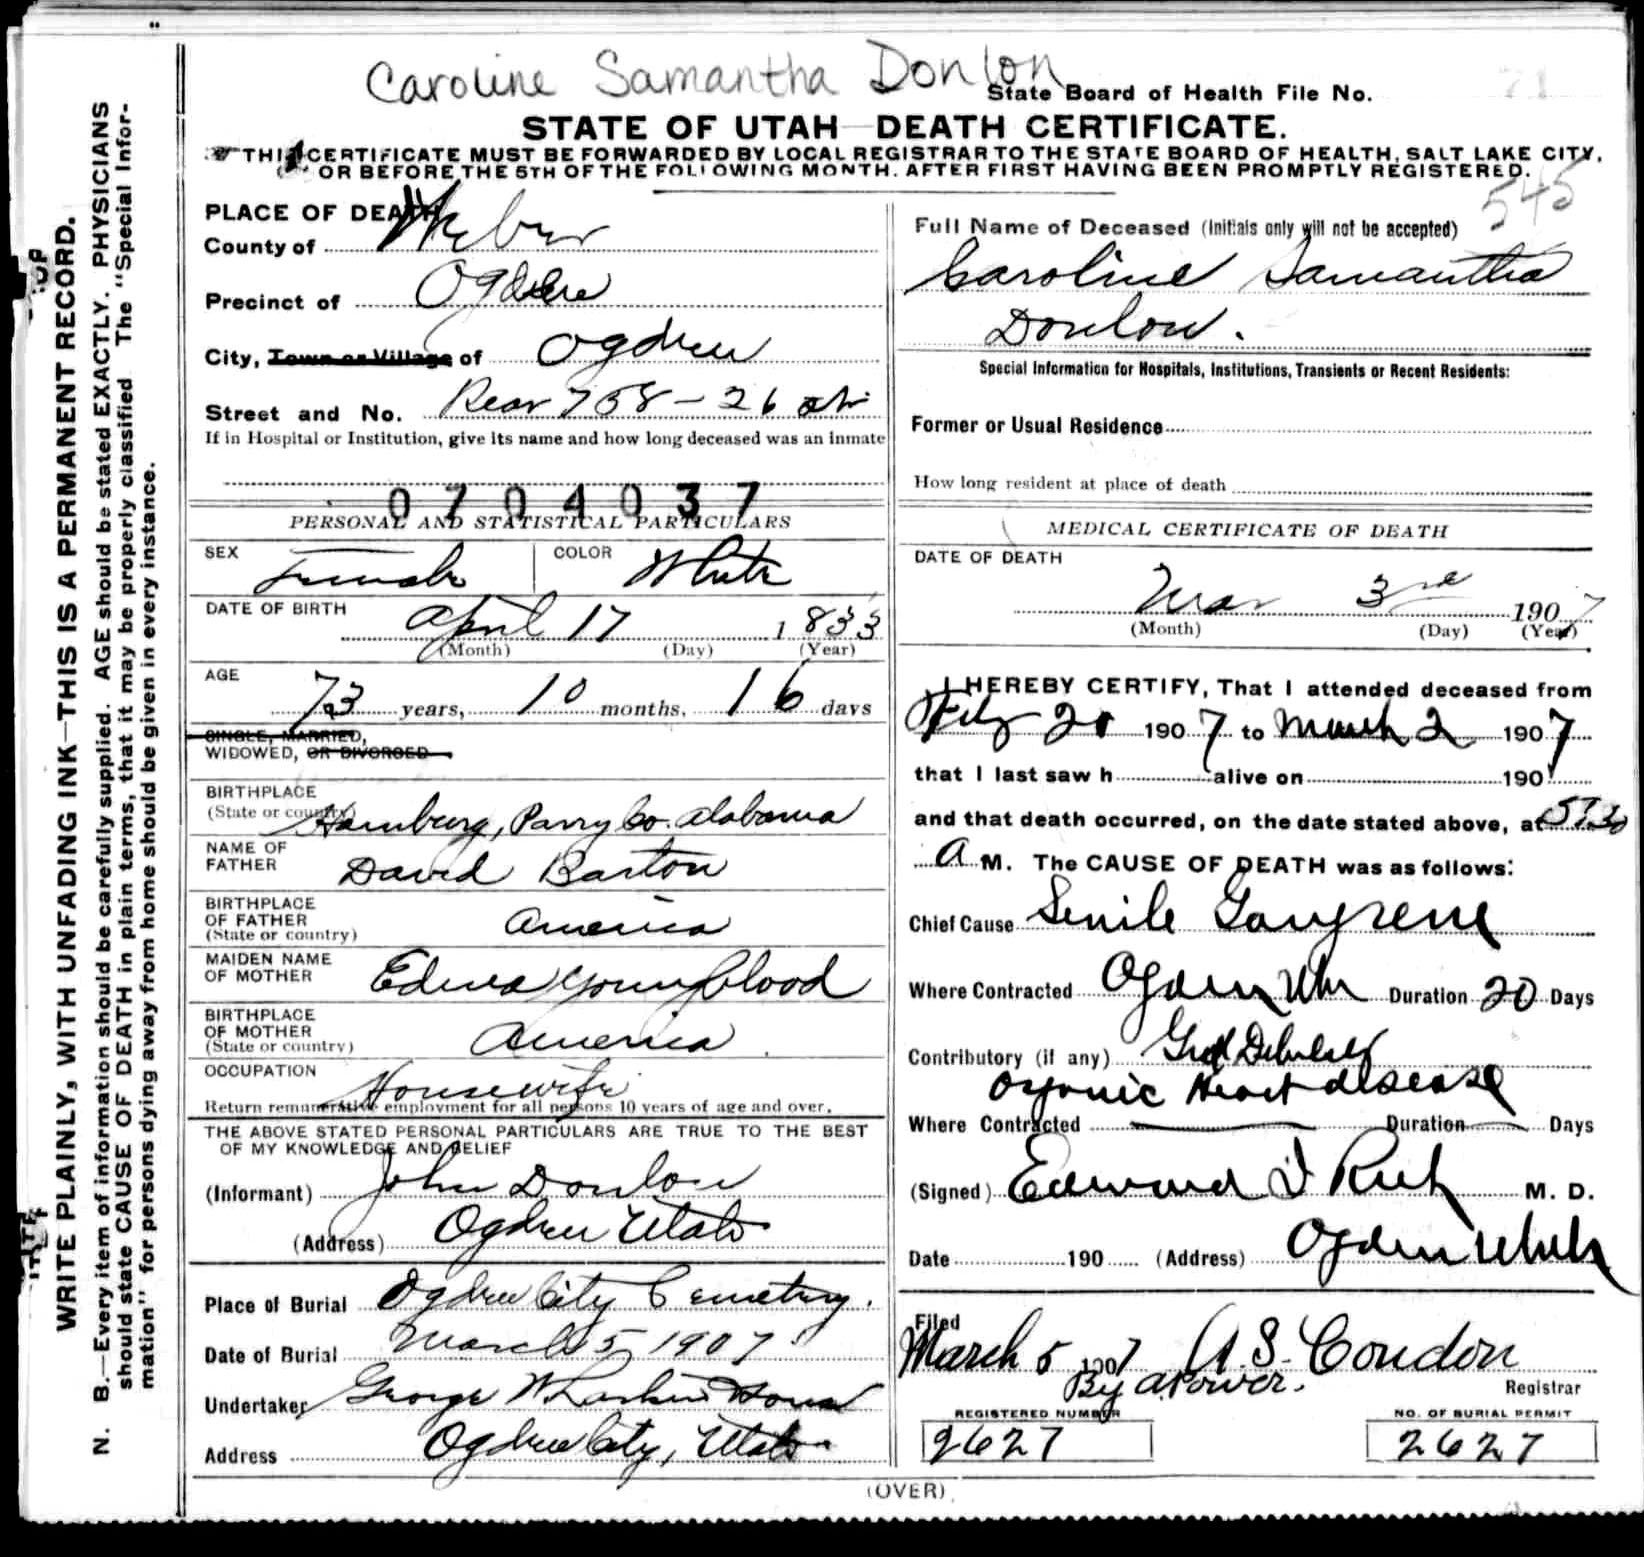 Caroline Samantha Donlon
State Board of Health File No.
STATE OF UTAH—DEATH CERTIFICATE.
THIS CERTIFICATE MUST BE FORWARDED BY LOCAL REGISTRAR TO THE STATE BOARD OF HEALTH, SALT LAKE CITY,
OR BEFORE THE 5TH OF THE FOLLOWING MONTH. AFTER FIRST HAVING BEEN PROMPTLY REGISTERED.
545
PLACE OF DEATH
County of Weber
Precinct of Ogden
City, Town or Village of Ogden
Street and No. Rear 758 - 26 str
If in Hospital or Institution, give its name and how long deceased was an inmate
0704037
PERSONAL AND STATISTICAL PARTICULARS
SEX Female COLOR White
DATE OF BIRTH April 17 1833
(Month) (Day) (Year)
AGE
73 years, 10 months, 16 days
SINGLE, MARRIED,
WIDOWED, OR DIVORCED
BIRTHPLACE
(State or country) Hamburg, Parry Co. Alabama
NAME OF
FATHER David Barton
BIRTHPLACE
OF FATHER America
(State or country)
MAIDEN NAME
OF MOTHER Edna Youngblood
BIRTHPLACE
OF MOTHER America
(State or country)
OCCUPATION Housewife
Return remunerative employment for all persons 10 years of age and over.
THE ABOVE STATED PERSONAL PARTICULARS ARE TRUE TO THE BEST
OF MY KNOWLEDGE AND BELIEF
(Informant) John Donlon
(Address) Ogden Utah
Place of Burial Ogden City Cemetery.
Date of Burial March 5 1907
Undertaker George W Larkin & Sons
Address Ogden City, Utah
Full Name of Deceased (Initials only will not be accepted)
Caroline Samantha
Donlon.
Special Information for Hospitals, Institutions, Transients or Recent Residents:
Former or Usual Residence
How long resident at place of death
MEDICAL CERTIFICATE OF DEATH
DATE OF DEATH
Mar 3rd 1907
(Month) (Day) (Year)
I HEREBY CERTIFY, That I attended deceased from
Feby 20 1907 to March 2 1907
that I last saw h alive on 190
and that death occurred, on the date stated above, at 5:30
A M. The CAUSE OF DEATH was as follows:
Chief Cause Senile Gangrene
Where Contracted Ogden Utah Duration 20 Days
Contributory (if any) Genl Debility
Organic Heart disease
Where Contracted Duration Days
(Signed) Edward I Rich M. D.
Date 190 (Address) Ogden Utah
Filed
March 5 1907 A. S. Condon
By A Power. Registrar
REGISTERED NUMBER NO. OF BURIAL PERMIT
2627 2627
(OVER)
WRITE PLAINLY, WITH UNFADING INK—THIS IS A PERMANENT RECORD.
N. B.—Every item of information should be carefully supplied. AGE should be stated EXACTLY. PHYSICIANS
should state CAUSE OF DEATH in plain terms, that it may be properly classified The "Special Infor-
mation" for persons dying away from home should be given in every instance.